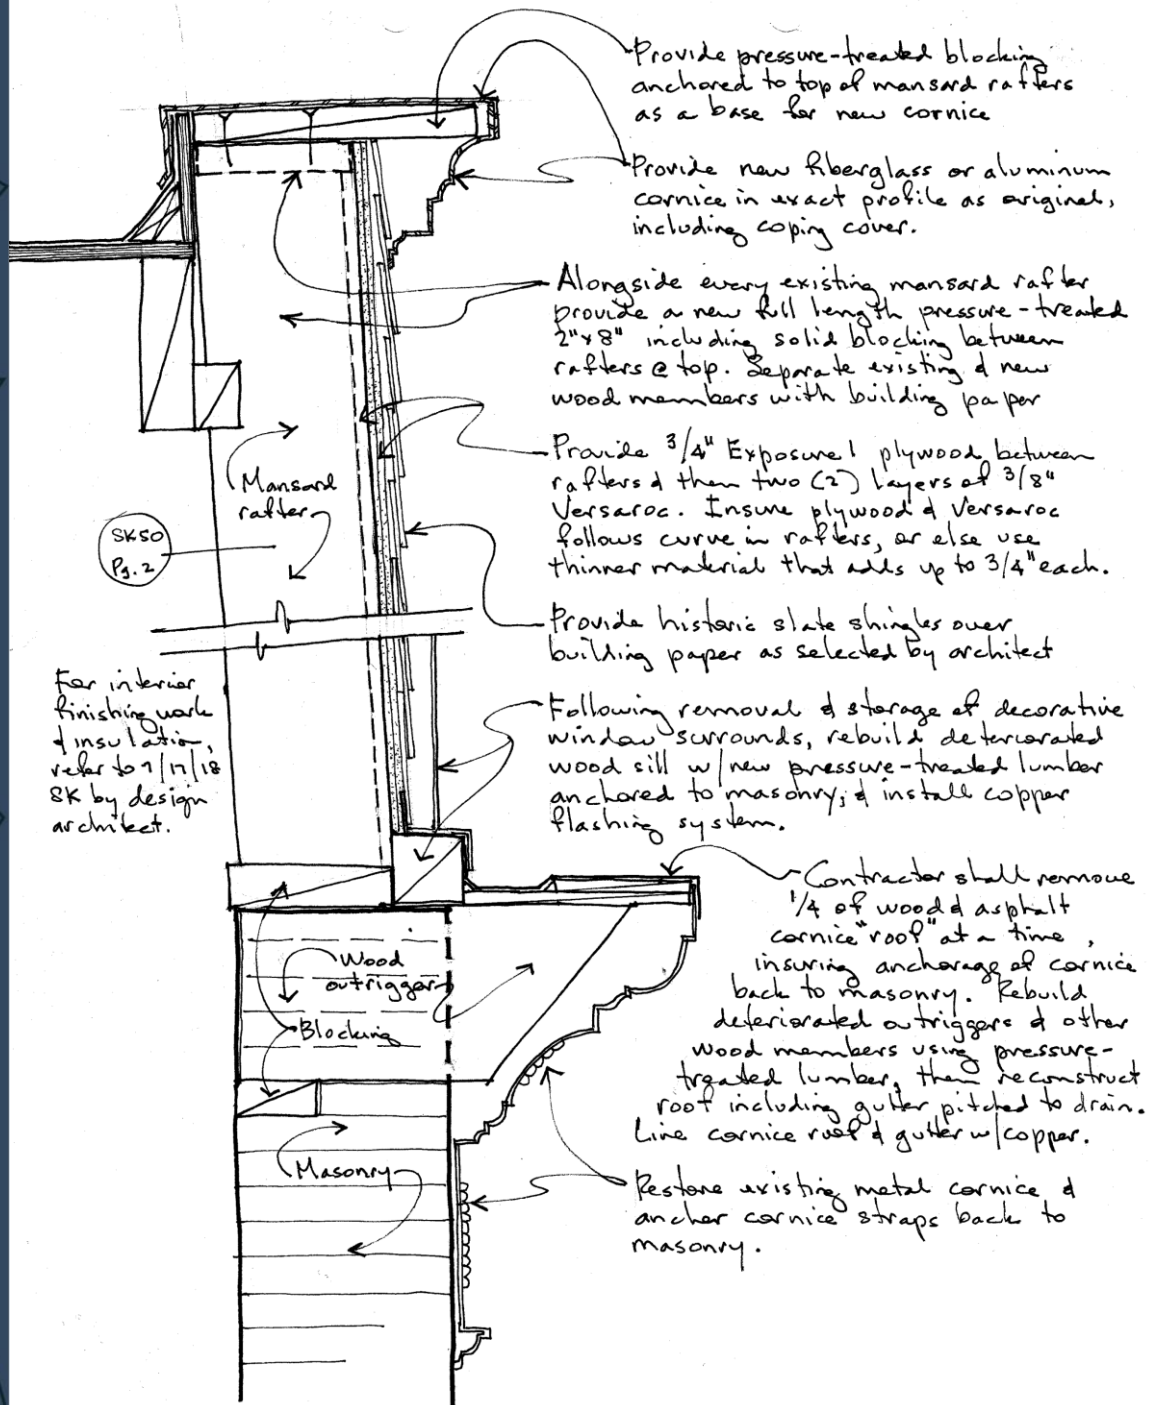 Provide pressure-treated blocking
anchored to top of mansard rafters
as a base for new cornice
Provide new fiberglass or aluminum
cornice in exact profile as original,
including coping cover.
Alongside every existing mansard rafter
provide a new full length pressure-treated
2"x8" including solid blocking between
rafters @ top. Separate existing & new
wood members with building paper
Provide 3/4" Exposure 1 plywood between
rafters & then two (2) layers of 3/8"
Versaroc. Insure plywood & Versaroc
follows curve in rafters, or else use
thinner material that adds up to 3/4" each.
Mansard
rafter
SK50
Pg. 2
Provide historic slate shingles over
building paper as selected by architect
For interior
finishing work
& insulation,
refer to 7/17/18
SK by design
architect.
Following removal & storage of decorative
window surrounds, rebuild deteriorated
wood sill w/new pressure-treated lumber
anchored to masonry; & install copper
flashing system.
Contractor shall remove
1/4 of wood & asphalt
cornice "roof" at a time,
insuring anchorage of cornice
back to masonry. Rebuild
deteriorated outriggers & other
wood members using pressure-
treated lumber, then reconstruct
roof including gutter pitched to drain.
Line cornice roof & gutter w/copper.
Wood
outrigger
Blocking
Masonry
Restore existing metal cornice &
anchor cornice straps back to
masonry.